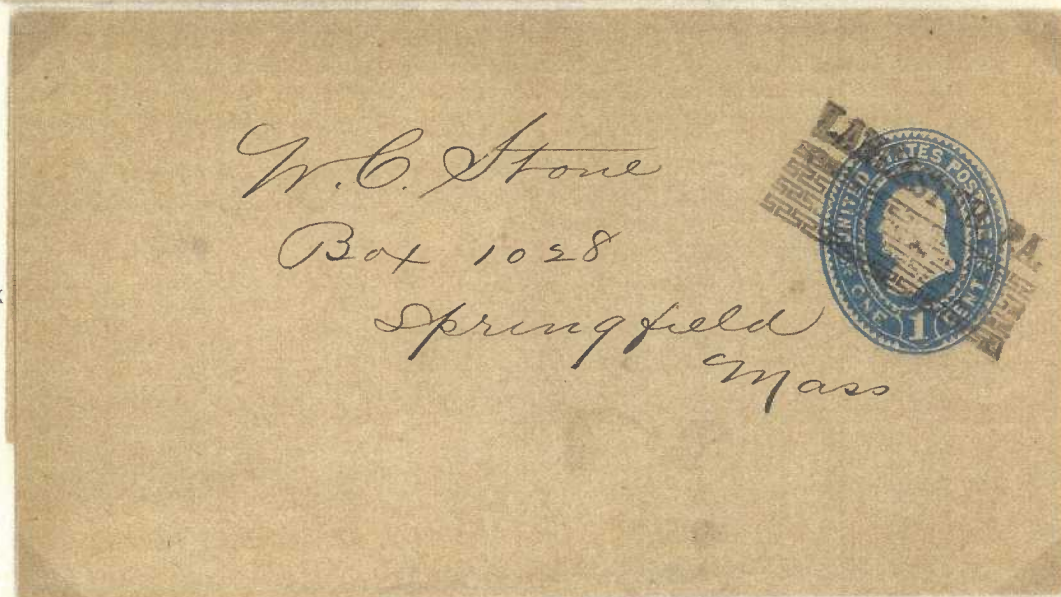 W. C. Stone
Box 1028
Springfield
Mass
UNITED STATES POSTAGE
ONE 1 CENT
PA.